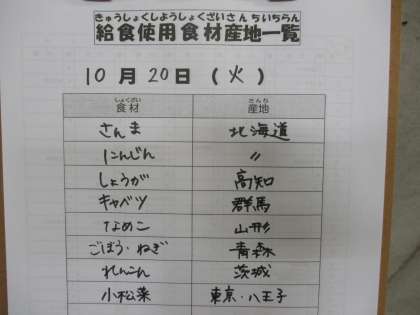 きゅうしょくしようしょくざいさんちいちらん
給食使用食材産地一覧
10月20日(火)
しょくざい さんち
食材 産地
さんま 北海道
にんじん 〃
しょうが 高知
キャベツ 群馬
なめこ 山形
ごぼう・ねぎ 青森
れんこん 茨城
小松菜 東京・八王子